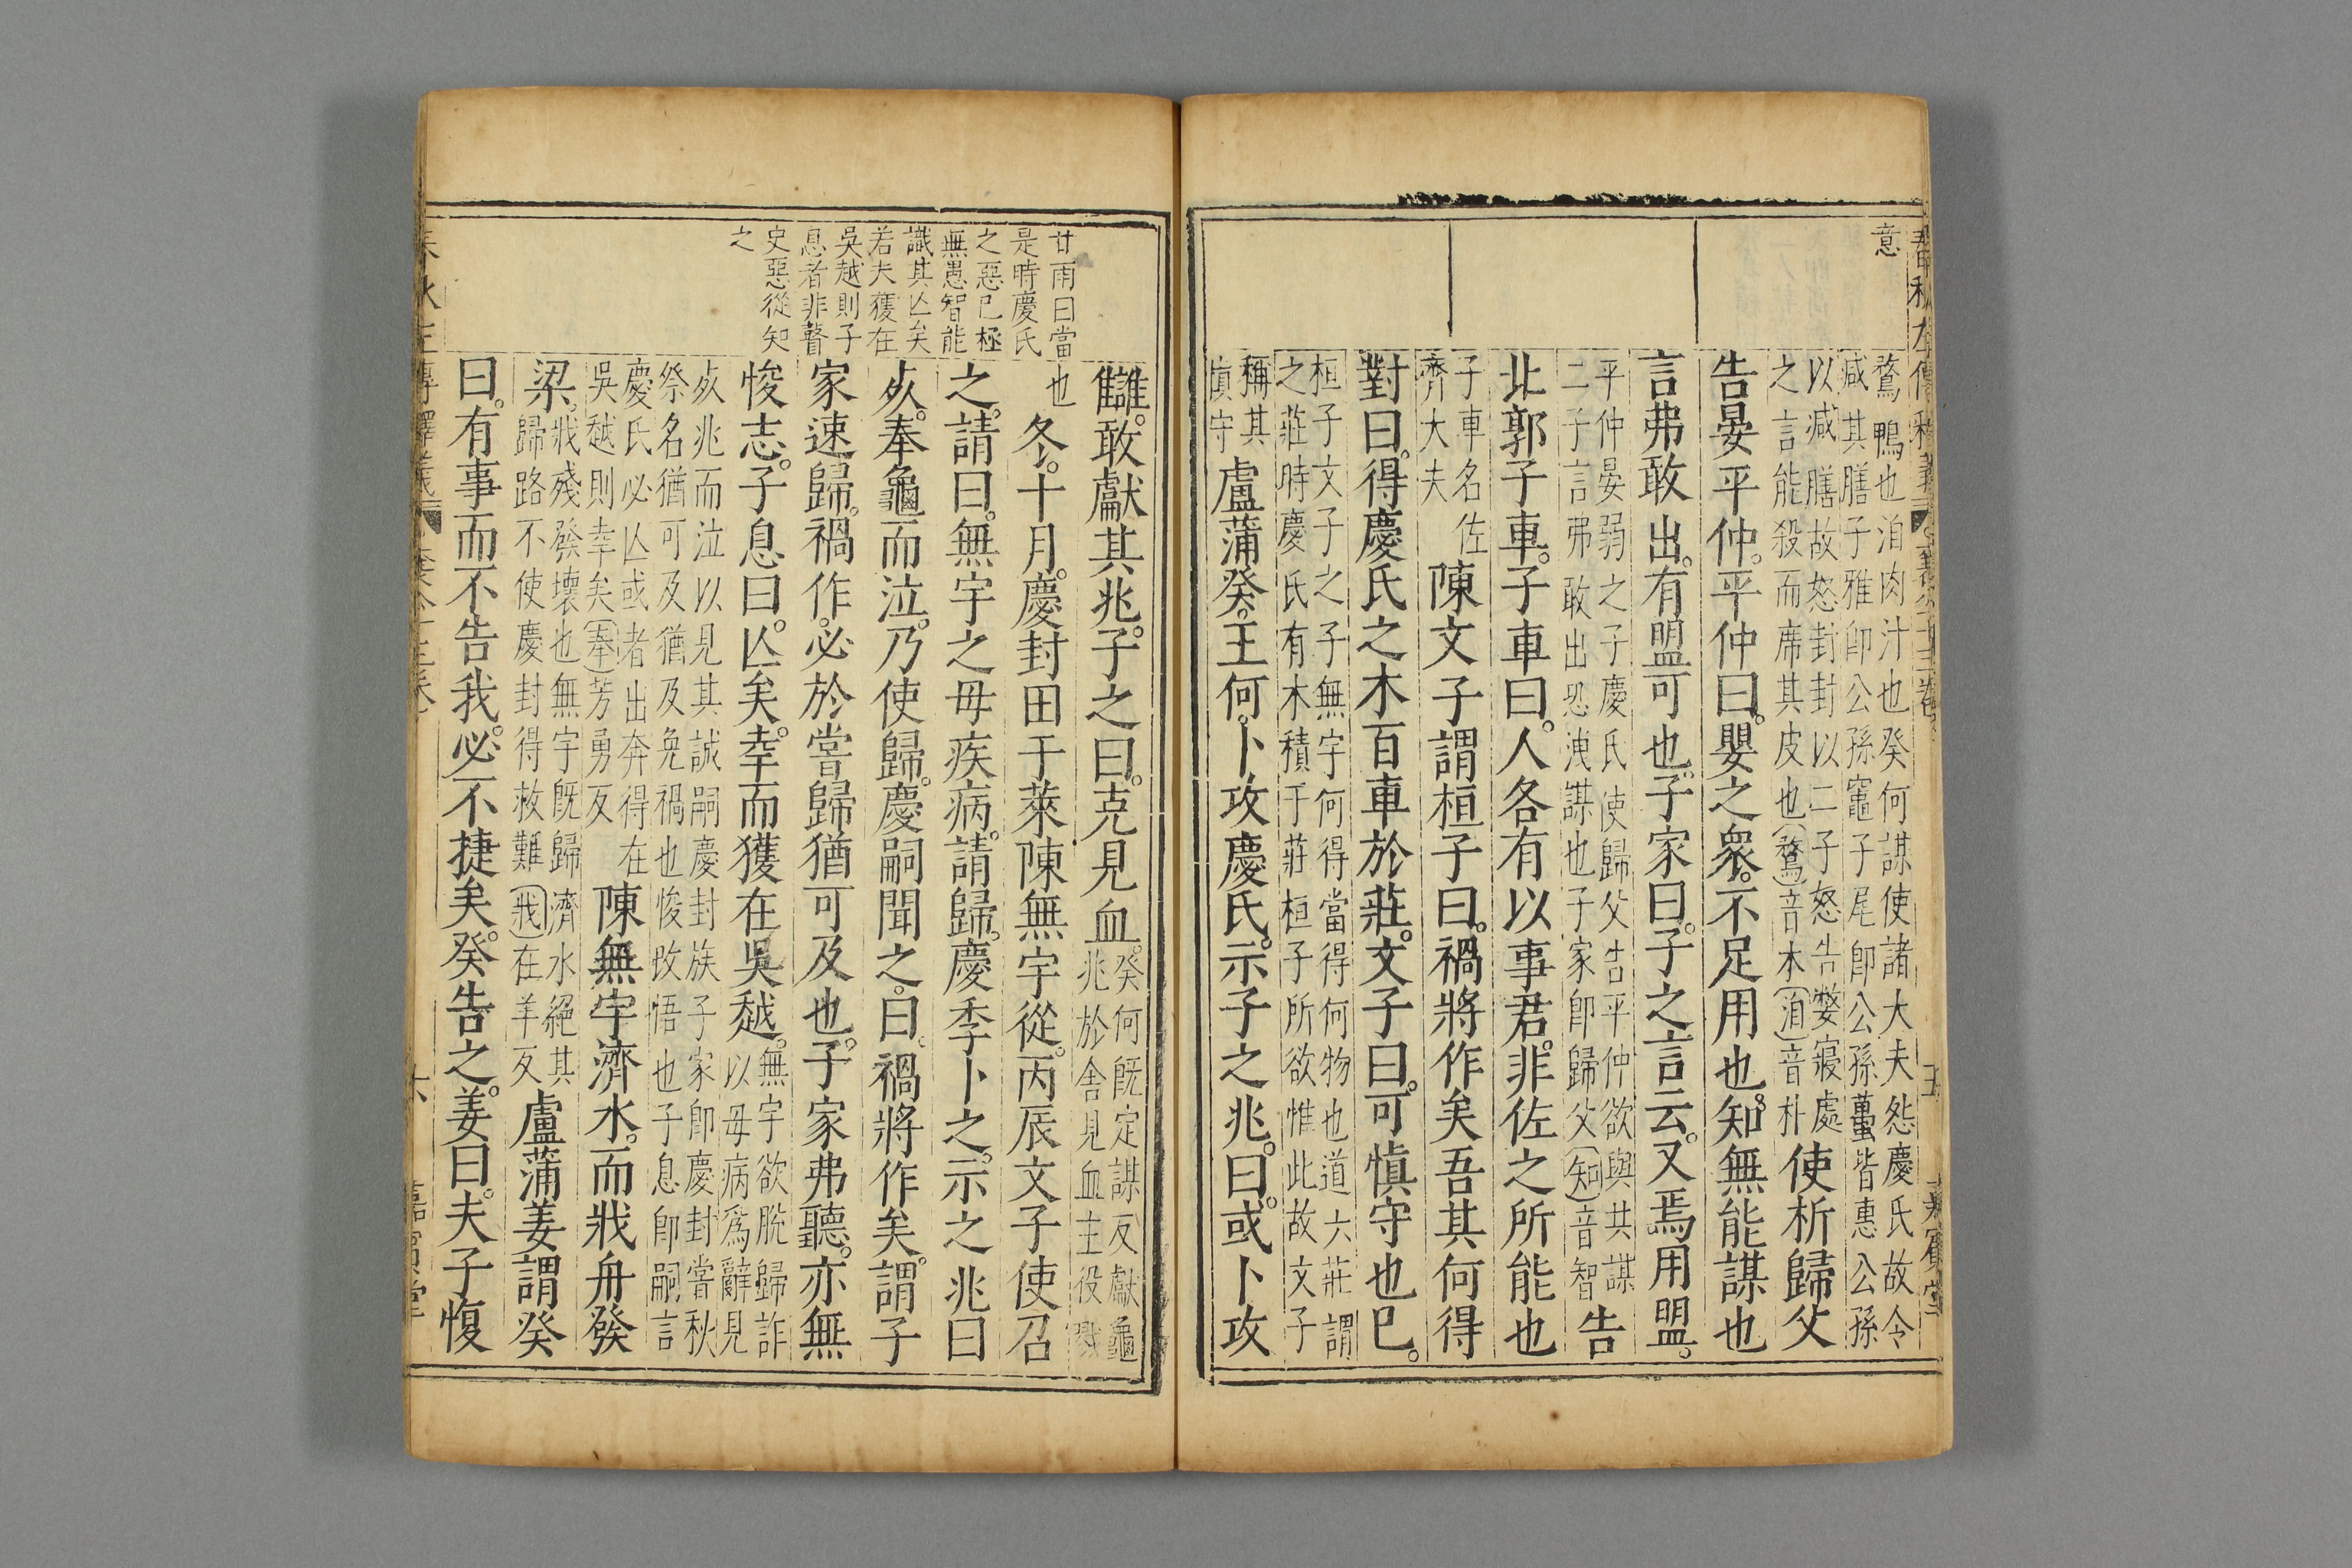 意
鶩鴨也洎肉汁也癸何謀使諸大夫怨慶氏故令
减其膳子雅卽公孫竈子尾卽公孫蠆皆惠公孫
以减膳故怒封封以二子怒告嫳寢處
之言能殺而席其皮也(鶩)音木(洎)音朴
使析歸父
告晏平仲。平仲曰。嬰之衆。不足用也。知無能謀也
言弗敢出。有盟可也。子家曰。子之言云。又焉用盟。
平仲晏弱之子慶氏使歸父告平仲欲與共謀
二子言弗敢出恐洩謀也子家卽歸父(知)音智
告
北郭子車。子車曰。人各有以事君。非佐之所能也
子車名佐
齊大夫
陳文子謂桓子曰。禍將作矣吾其何得
對曰。得慶氏之木百車於莊。文子曰。可愼守也已。
桓子文子之子無宇何得當得何物也道六莊謂
之莊時慶氏有木積于莊桓子所欲惟此故文子
稱其
愼守
盧蒲癸。王何。卜攻慶氏。示子之兆。曰。或卜攻
廿雨曰當
是時慶氏
之惡已極
無愚智能
識其亾矣
若夫獲在
吳越則子
息者非瞽
史惡從知
之
讎。敢獻其兆。子之曰。克見血。
癸何旣定謀反獻龜
兆於舍見血主役戮
也
冬。十月。慶封田于萊陳無宇從。丙辰文子使召
之。請曰。無宇之母疾病。請歸。慶季卜之。示之兆曰
死。奉龜而泣。乃使歸。慶嗣聞之。曰。禍將作矣。謂子
家速歸。禍作。必於嘗歸猶可及也。子家弗聽。亦無
悛志。子息曰。亾矣。幸而獲在吳越。
無宇欲脫歸詐
以母病爲辭見
死兆而泣以見其誠嗣慶封族子家卽慶封嘗秋
祭名猶可及猶及免禍也悛改悟也子息卽嗣言
慶氏必亾或者出奔得在
吳越則幸矣(奉)芳勇反
陳無宇濟水。而戕舟發
梁。
戕殘發壞也無宇旣歸濟水絕其
歸路不使慶封得救難(戕)在羊反
盧蒲姜謂癸
曰。有事而不告我。必不捷矣。癸告之。姜曰。夫子愎